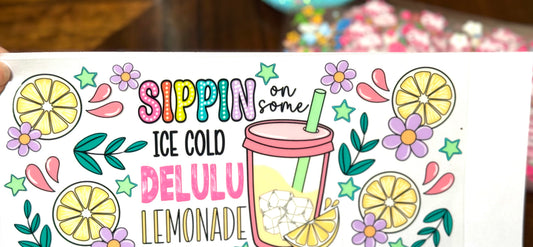 SIPPIN on
some
ICE COLD
DELULU
LEMONADE